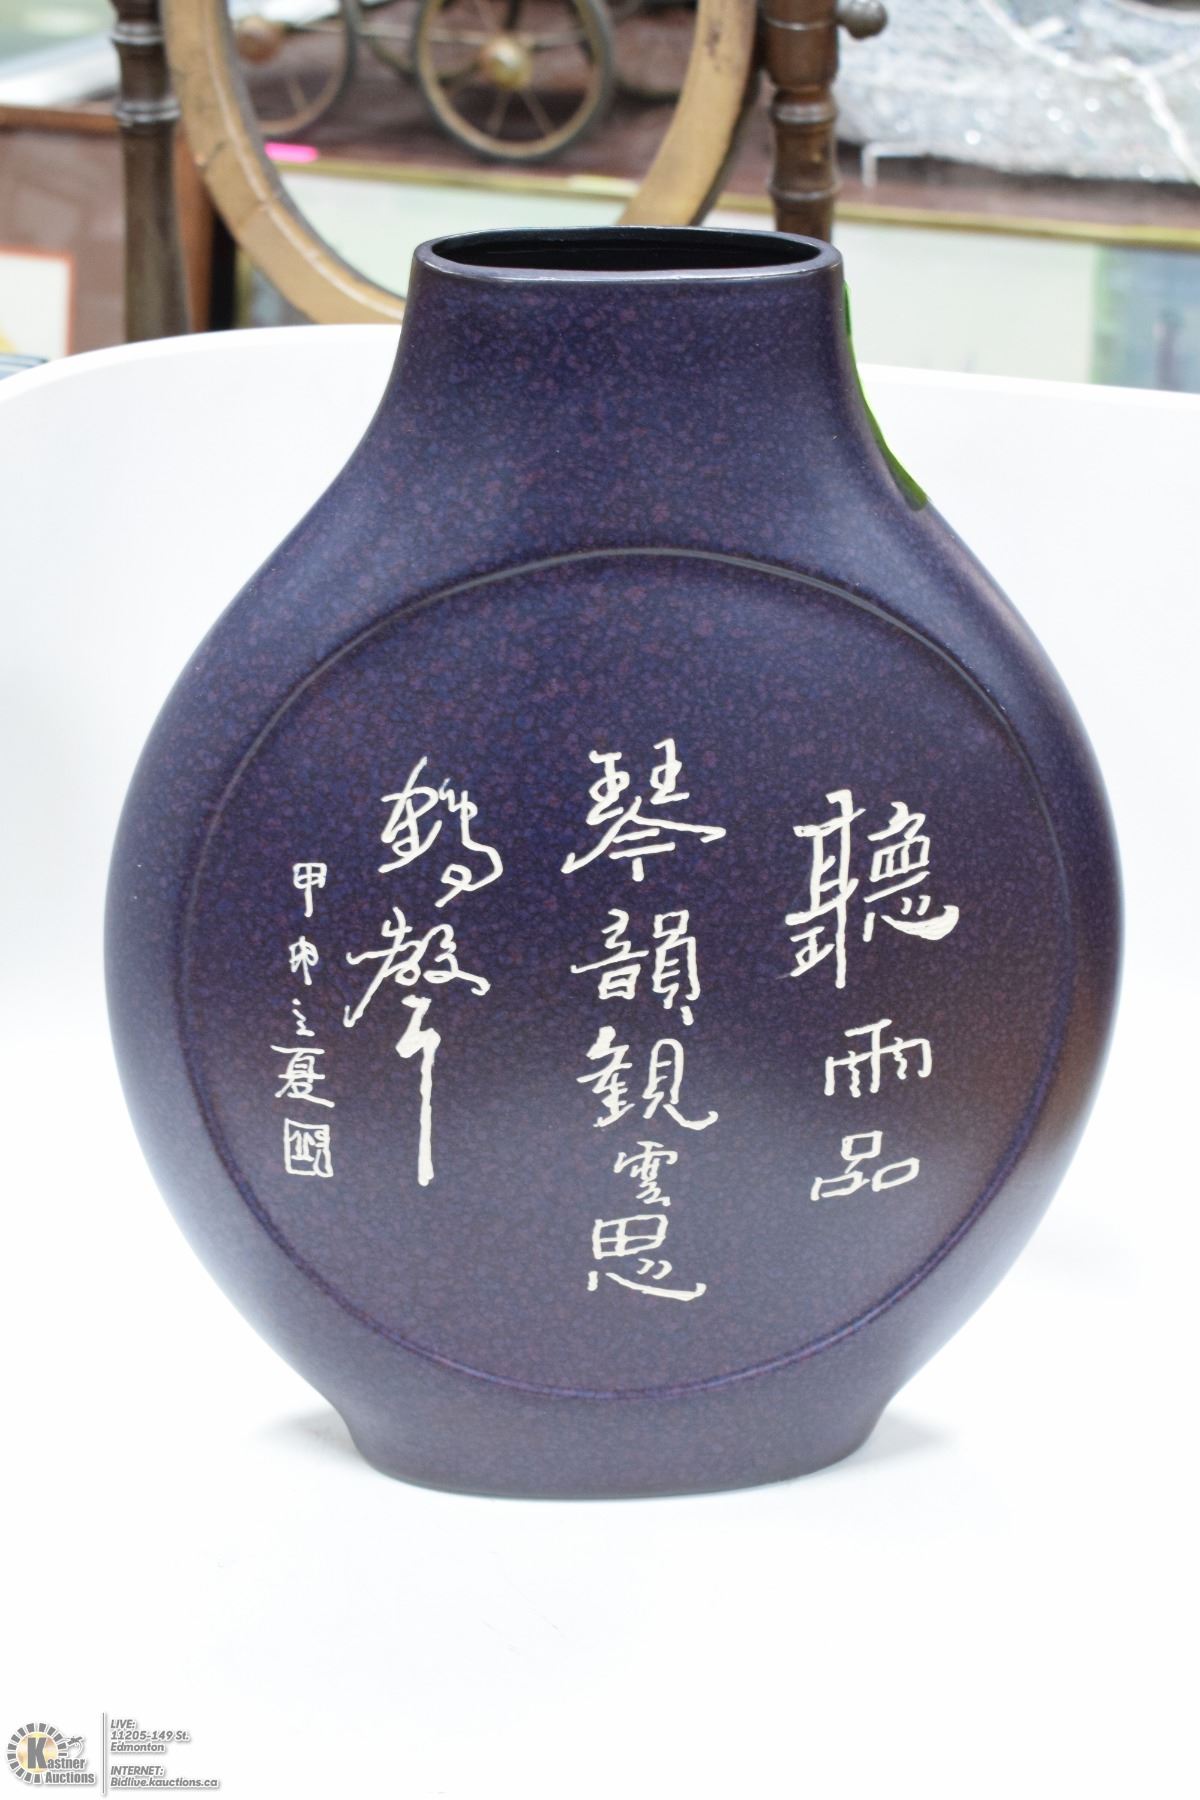 聽雨品
琴韻觀雲思
鶴聲
甲申之夏
Kastner
Auctions
LIVE:
11205-149 St.
Edmonton
INTERNET:
Bidlive.kauctions.ca